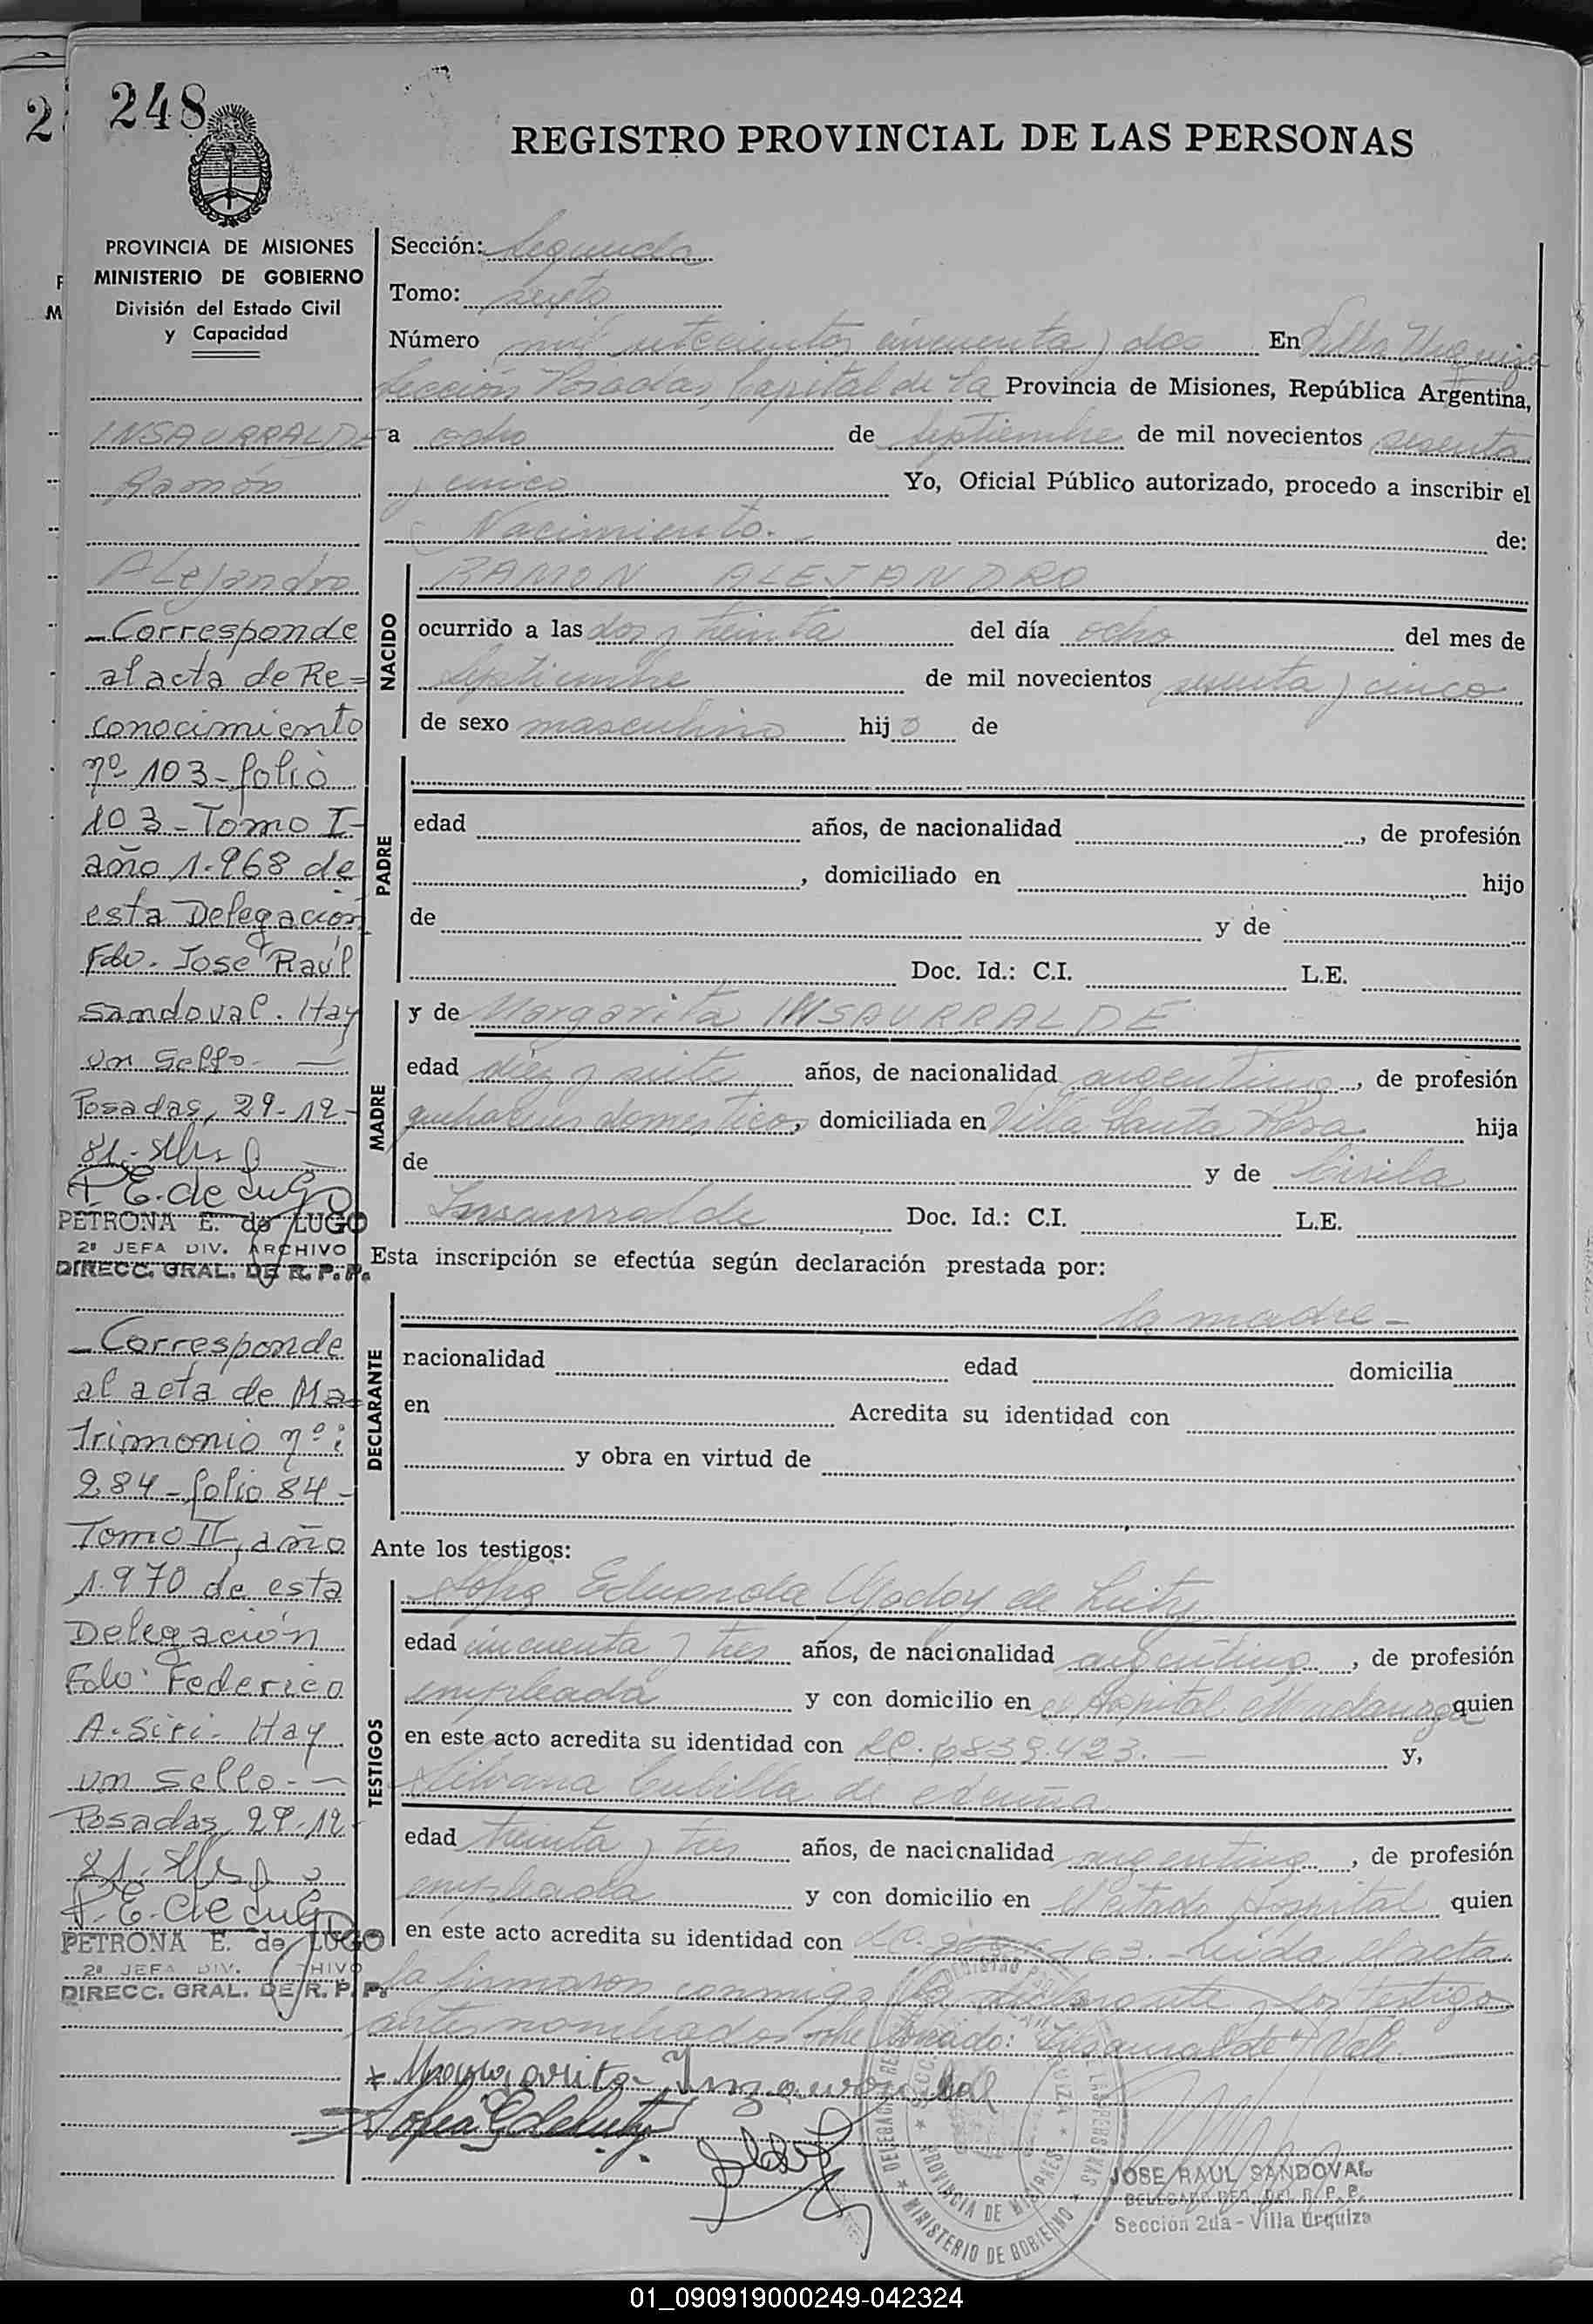 248
2
REGISTRO PROVINCIAL DE LAS PERSONAS
PROVINCIA DE MISIONES
MINISTERIO DE GOBIERNO
División del Estado Civil
y Capacidad
INSAURRALDE
Ramón
Alejandro
- Corresponde
al acta de Re=
conocimiento
nº 103 - folio
103 - Tomo I -
año 1.968 de
esta Delegación
Fdo. José Raúl
Sandoval. Hay
un Sello. —
Posadas, 29-12-
81.-
P. E. de Lugo
PETRONA E. de LUGO
2ª JEFA DIV. ARCHIVO
DIRECC. GRAL. DE R. P. P.
- Corresponde
al acta de Ma=
trimonio nº:
284 - folio 84 -
Tomo II, año
1.970 de esta
Delegación
Fdo: Federico
A. Siri - Hay
un sello. —
Posadas, 29-12-
81.-
P. E. de Lugo
PETRONA E. de LUGO
2ª JEFA DIV. ARCHIVO
DIRECC. GRAL. DE R. P. P.
Sección: Segunda
Tomo: sexto
Número mil setecientos cincuenta y dos En Villa Urquiza
Sección Posadas, Capital de la Provincia de Misiones, República Argentina,
a ocho de Septiembre de mil novecientos sesenta
y cinco Yo, Oficial Público autorizado, procedo a inscribir el
Nacimiento.- de:
NACIDO
RAMON ALEJANDRO
ocurrido a las dos y treinta del día ocho del mes de
Septiembre de mil novecientos sesenta y cinco
de sexo masculino hijo de
PADRE
edad años, de nacionalidad , de profesión
, domiciliado en hijo
de y de
Doc. Id.: C.I. L.E.
MADRE
y de Margarita INSAURRALDE
edad diez y siete años, de nacionalidad argentina, de profesión
quehaceres domestico, domiciliada en Villa Santa Rosa hija
de y de Cirila
Insaurralde Doc. Id.: C.I. L.E.
Esta inscripción se efectúa según declaración prestada por:
DECLARANTE
la madre -
nacionalidad edad domicilia
en Acredita su identidad con
y obra en virtud de
Ante los testigos:
TESTIGOS
Sofia Eduarda Godoy de
edad cincuenta y tres años, de nacionalidad argentina, de profesión
empleada y con domicilio en el Hospital Madariaga quien
en este acto acredita su identidad con LC. 6839.423. — y,
Silvana Cubilla de
edad treinta y tres años, de nacionalidad argentina, de profesión
empleada y con domicilio en el citado Hospital quien
en este acto acredita su identidad con LC. 163.- Leida el acta
la firmaron conmigo la declarante y los testigos
antes nombrados. Insaurralde Vale
Margarita
MINISTERIO DE GOBIERNO
PROVINCIA DE MISIONES
JOSE RAUL SANDOVAL
DELEGADO REG. DEL R. P. P.
Sección 2da - Villa Urquiza
01_090919000249-042324